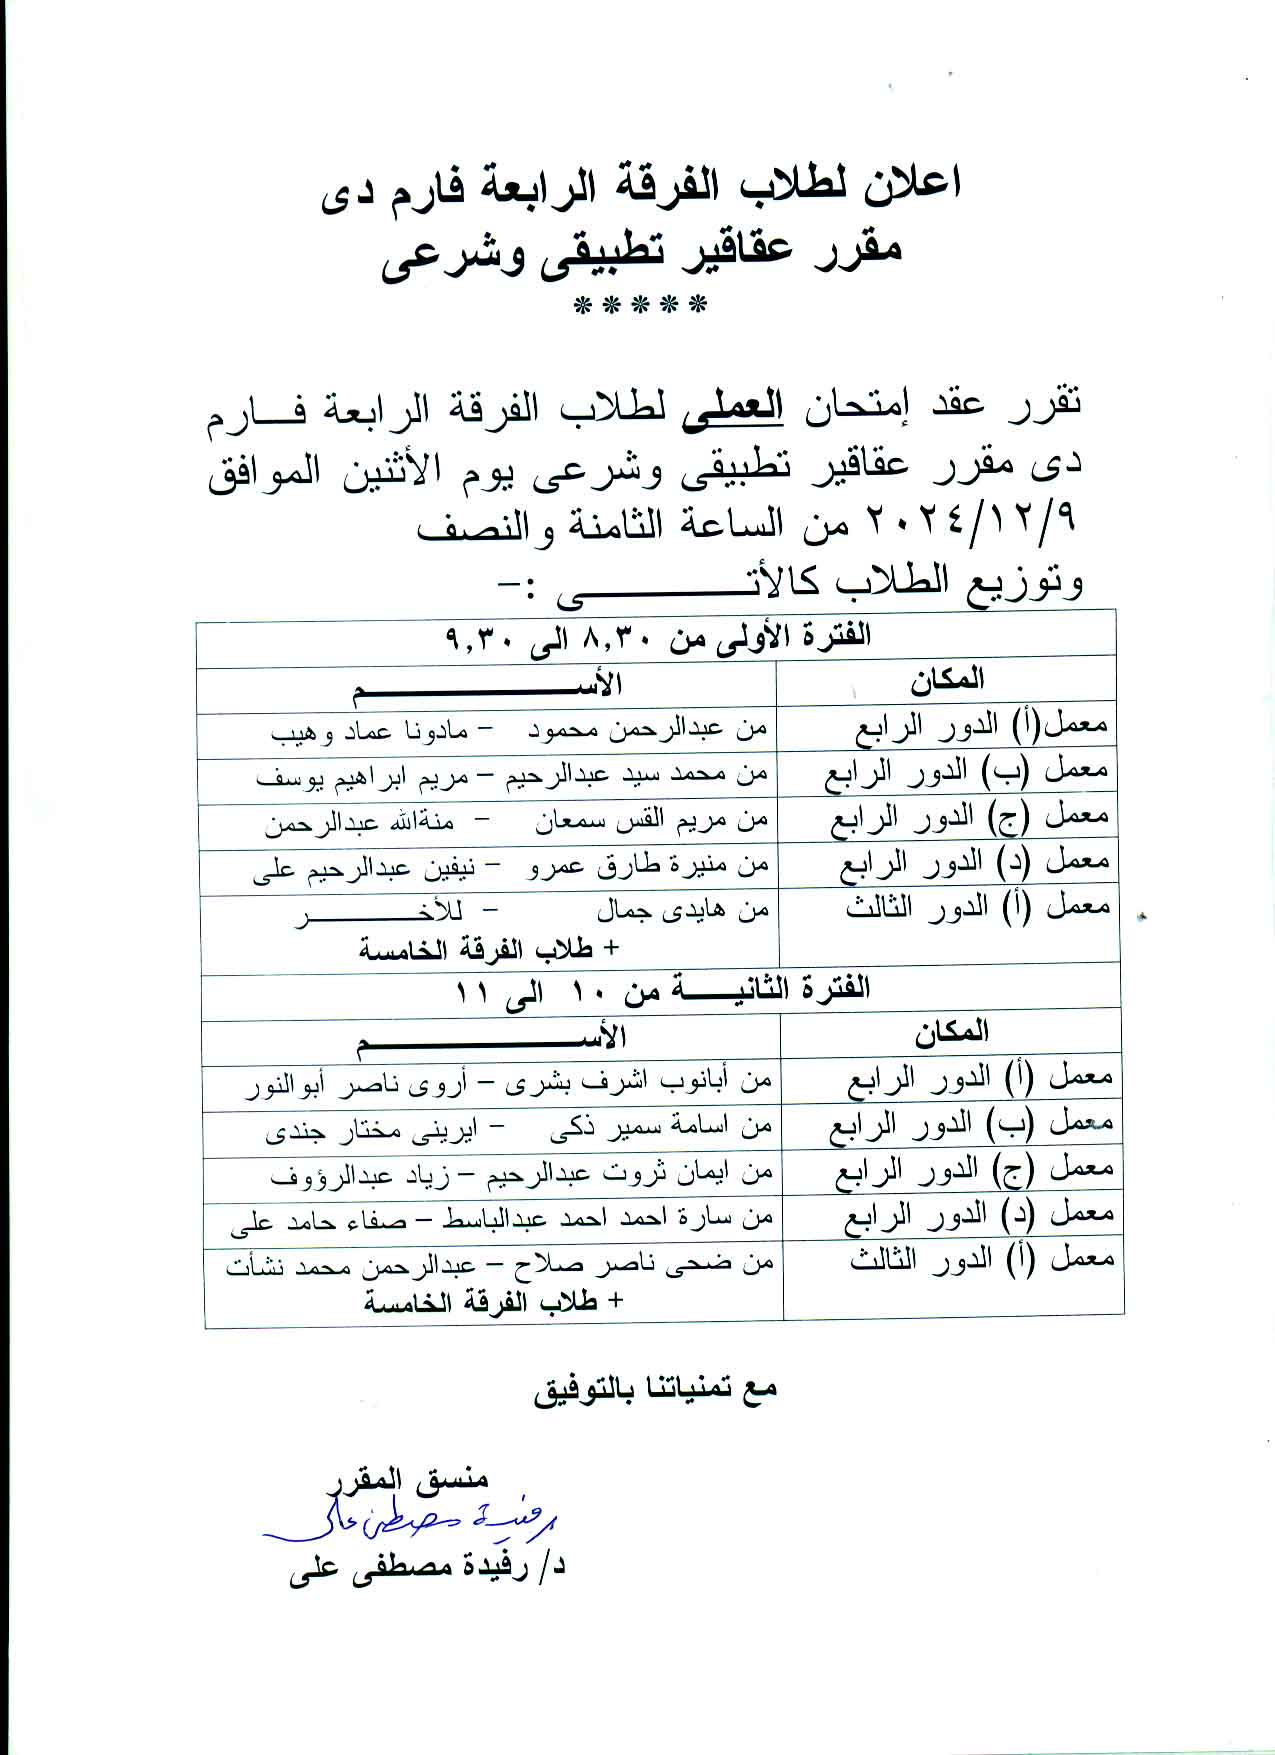 اعلان لطلاب الفرقة الرابعة فارم دى
مقرر عقاقير تطبيقى وشرعى
*****
تقرر عقد إمتحان العملى لطلاب الفرقة الرابعة فـــارم
دى مقرر عقاقير تطبيقى وشرعى يوم الأثنين الموافق
٢٠٢٤/١٢/٩ من الساعة الثامنة والنصف
وتوزيع الطلاب كالأتــــــــــــى :-
الفترة الأولى من ٨,٣٠ الى ٩,٣٠
المكان الأســــــــــــــــــــــم
معمل(أ) الدور الرابع من عبدالرحمن محمود - مادونا عماد وهيب
معمل (ب) الدور الرابع من محمد سيد عبدالرحيم - مريم ابراهيم يوسف
معمل (ج) الدور الرابع من مريم القس سمعان - منةالله عبدالرحمن
معمل (د) الدور الرابع من منيرة طارق عمرو - نيفين عبدالرحيم على
معمل (أ) الدور الثالث من هايدى جمال - للأخـــــــــر
+ طلاب الفرقة الخامسة
الفترة الثانيـــــة من ١٠ الى ١١
المكان الأســــــــــــــــــــــم
معمل (أ) الدور الرابع من أبانوب اشرف بشرى - أروى ناصر أبوالنور
معمل (ب) الدور الرابع من اسامة سمير ذكى - ايرينى مختار جندى
معمل (ج) الدور الرابع من ايمان ثروت عبدالرحيم - زياد عبدالرؤوف
معمل (د) الدور الرابع من سارة احمد احمد عبدالباسط - صفاء حامد على
معمل (أ) الدور الثالث من ضحى ناصر صلاح - عبدالرحمن محمد نشأت
+ طلاب الفرقة الخامسة
مع تمنياتنا بالتوفيق
منسق المقرر
رفيدة مصطفى على
د/ رفيدة مصطفى على